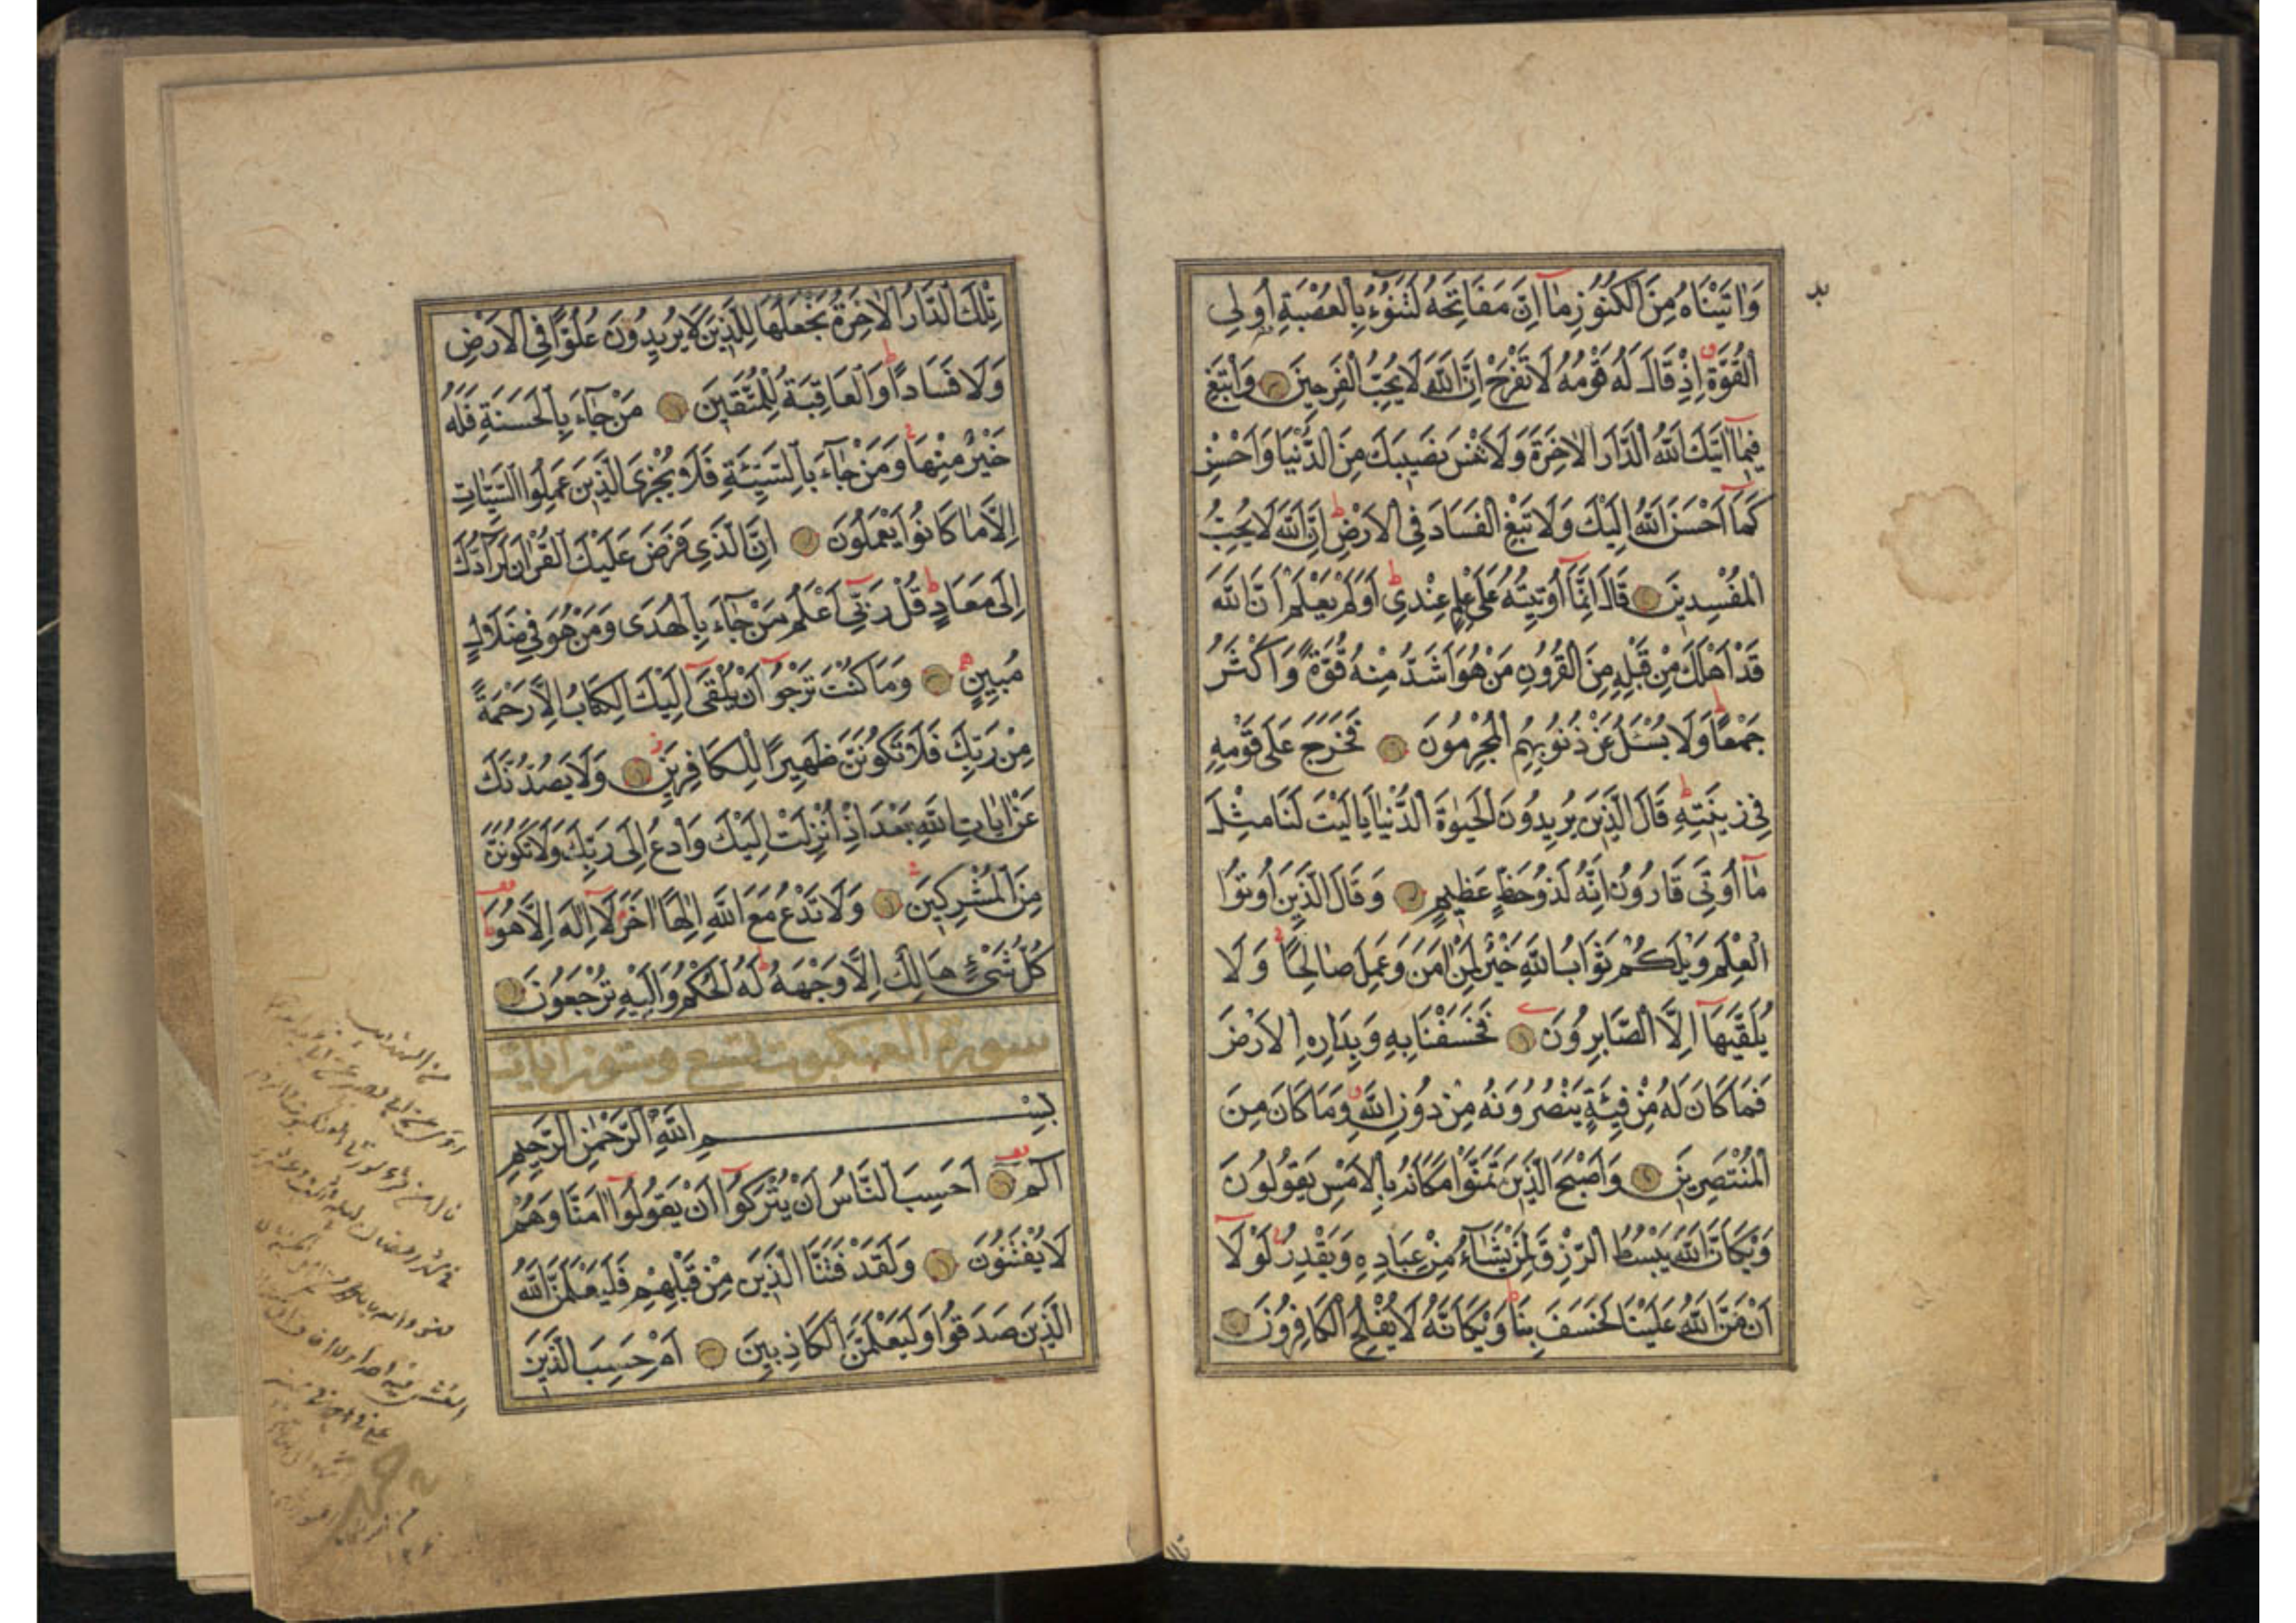 وَاٰتَيْنَاهُ مِنَ الْكُنُوزِ مَٓا اِنَّ مَفَاتِحَهُ لَتَنُٓوءُ بِالْعُصْبَةِ اُو۬لِي
الْقُوَّةِ اِذْ قَالَ لَهُ قَوْمُهُ لَا تَفْرَحْ اِنَّ اللّٰهَ لَا يُحِبُّ الْفَرِحِينَ وَابْتَغِ
فِيمَٓا اٰتٰيكَ اللّٰهُ الدَّارَ الْاٰخِرَةَ وَلَا تَنْسَ نَصِيبَكَ مِنَ الدُّنْيَا وَاَحْسِنْ
كَمَٓا اَحْسَنَ اللّٰهُ اِلَيْكَ وَلَا تَبْغِ الْفَسَادَ فِي الْاَرْضِ اِنَّ اللّٰهَ لَا يُحِبُّ
الْمُفْسِدِينَ قَالَ اِنَّمَٓا اُو۫تِيتُهُ عَلٰى عِلْمٍ عِنْدِي اَوَلَمْ يَعْلَمْ اَنَّ اللّٰهَ
قَدْ اَهْلَكَ مِنْ قَبْلِهِ مِنَ الْقُرُونِ مَنْ هُوَ اَشَدُّ مِنْهُ قُوَّةً وَاَكْثَرُ
جَمْعًا وَلَا يُسْـَٔلُ عَنْ ذُنُوبِهِمُ الْمُجْرِمُونَ فَخَرَجَ عَلٰى قَوْمِهِ
فِي زِينَتِهِ قَالَ الَّذِينَ يُرِيدُونَ الْحَيٰوةَ الدُّنْيَا يَا لَيْتَ لَنَا مِثْلَ
مَٓا اُو۫تِيَ قَارُونُ اِنَّهُ لَذُو حَظٍّ عَظِيمٍ وَقَالَ الَّذِينَ اُو۫تُوا
الْعِلْمَ وَيْلَكُمْ ثَوَابُ اللّٰهِ خَيْرٌ لِمَنْ اٰمَنَ وَعَمِلَ صَالِحًا وَلَا
يُلَقّٰيهَٓا اِلَّا الصَّابِرُونَ فَخَسَفْنَا بِهِ وَبِدَارِهِ الْاَرْضَ
فَمَا كَانَ لَهُ مِنْ فِئَةٍ يَنْصُرُونَهُ مِنْ دُونِ اللّٰهِ وَمَا كَانَ مِنَ
الْمُنْتَصِرِينَ وَاَصْبَحَ الَّذِينَ تَمَنَّوْا مَكَانَهُ بِالْاَمْسِ يَقُولُونَ
وَيْكَاَنَّ اللّٰهَ يَبْسُطُ الرِّزْقَ لِمَنْ يَشَٓاءُ مِنْ عِبَادِهِ وَيَقْدِرُ لَوْلَٓا
اَنْ مَنَّ اللّٰهُ عَلَيْنَا لَخَسَفَ بِنَا وَيْكَاَنَّهُ لَا يُفْلِحُ الْكَافِرُونَ
تِلْكَ الدَّارُ الْاٰخِرَةُ نَجْعَلُهَا لِلَّذِينَ لَا يُرِيدُونَ عُلُوًّا فِي الْاَرْضِ
وَلَا فَسَادًا وَالْعَاقِبَةُ لِلْمُتَّقِينَ مَنْ جَٓاءَ بِالْحَسَنَةِ فَلَهُ
خَيْرٌ مِنْهَا وَمَنْ جَٓاءَ بِالسَّيِّئَةِ فَلَا يُجْزَى الَّذِينَ عَمِلُوا السَّيِّـَٔاتِ
اِلَّا مَا كَانُوا يَعْمَلُونَ اِنَّ الَّذِي فَرَضَ عَلَيْكَ الْقُرْاٰنَ لَرَٓادُّكَ
اِلٰى مَعَادٍ قُلْ رَبِّٓي اَعْلَمُ مَنْ جَٓاءَ بِالْهُدٰى وَمَنْ هُوَ فِي ضَلَالٍ
مُبِينٍ وَمَا كُنْتَ تَرْجُٓوا اَنْ يُلْقٰٓى اِلَيْكَ الْكِتَابُ اِلَّا رَحْمَةً
مِنْ رَبِّكَ فَلَا تَكُونَنَّ ظَهِيرًا لِلْكَافِرِينَ وَلَا يَصُدُّنَّكَ
عَنْ اٰيَاتِ اللّٰهِ بَعْدَ اِذْ اُنْزِلَتْ اِلَيْكَ وَادْعُ اِلٰى رَبِّكَ وَلَا تَكُونَنَّ
مِنَ الْمُشْرِكِينَ وَلَا تَدْعُ مَعَ اللّٰهِ اِلٰهًا اٰخَرَ لَٓا اِلٰهَ اِلَّا هُوَ
كُلُّ شَيْءٍ هَالِكٌ اِلَّا وَجْهَهُ لَهُ الْحُكْمُ وَاِلَيْهِ تُرْجَعُونَ
سورة العنكبوت تسع وستون ايات
بِسْمِ اللّٰهِ الرَّحْمٰنِ الرَّحِيمِ
الٓمٓ اَحَسِبَ النَّاسُ اَنْ يُتْرَكُٓوا اَنْ يَقُولُٓوا اٰمَنَّا وَهُمْ
لَا يُفْتَنُونَ وَلَقَدْ فَتَنَّا الَّذِينَ مِنْ قَبْلِهِمْ فَلَيَعْلَمَنَّ اللّٰهُ
الَّذِينَ صَدَقُوا وَلَيَعْلَمَنَّ الْكَاذِبِينَ اَمْ حَسِبَ الَّذِينَ